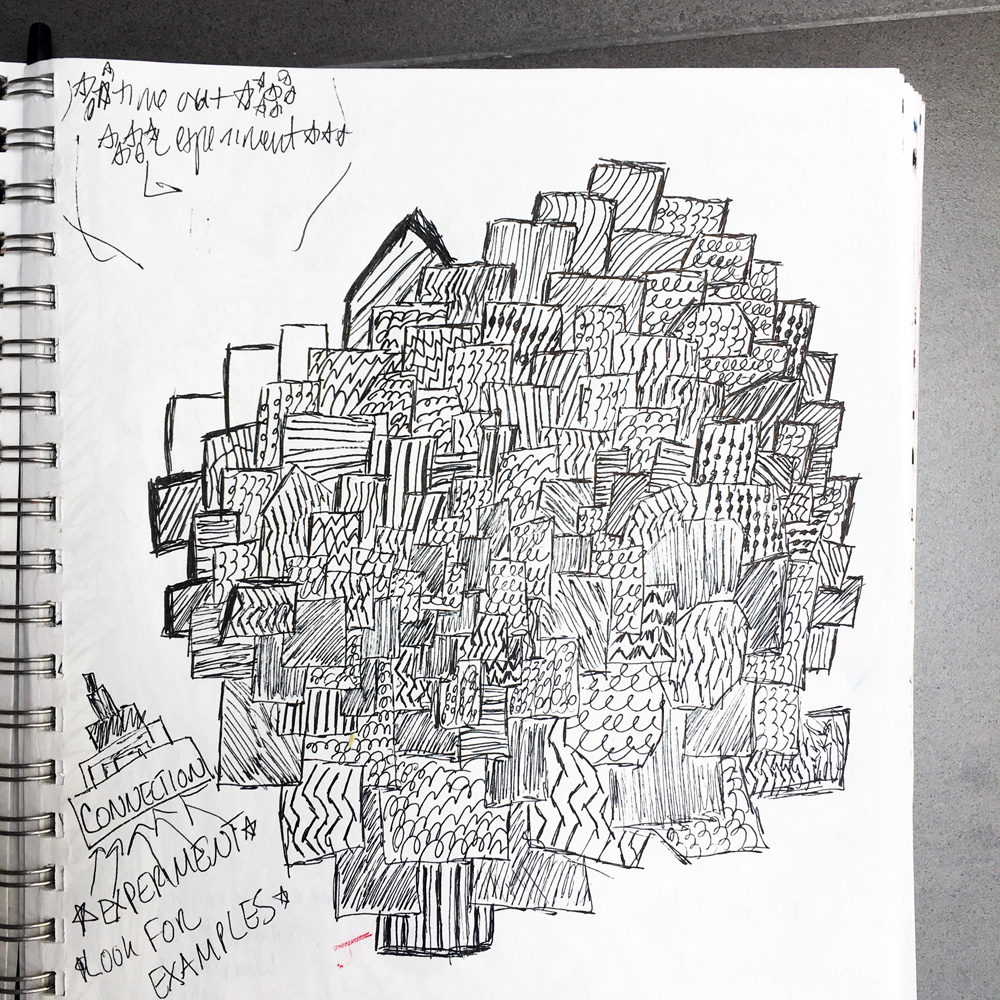 time out
experiment
CONNECTION
EXPERIMENT
LOOK FOR
EXAMPLES